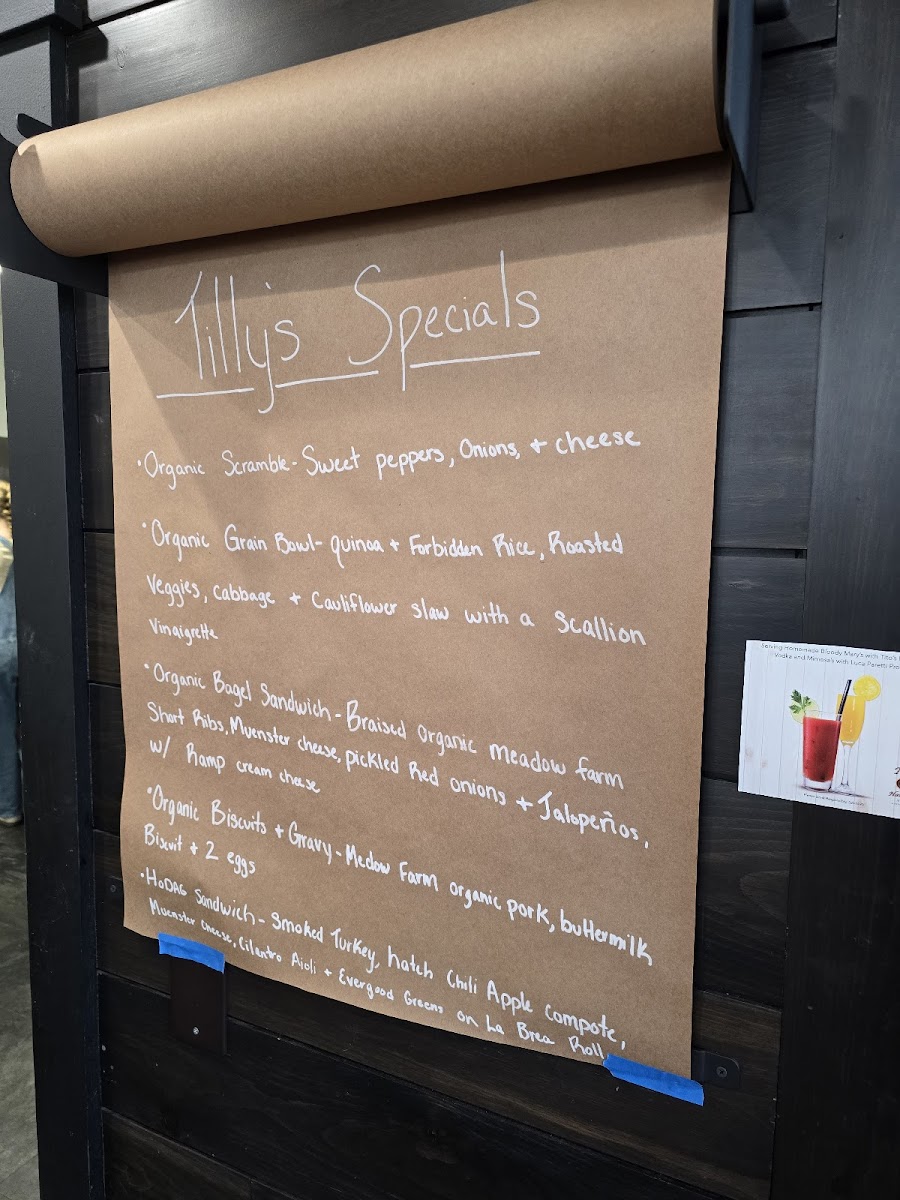 Tilly's Specials
• Organic Scramble - Sweet peppers, Onions, + cheese
• Organic Grain Bowl - quinoa + Forbidden Rice, Roasted
Veggies, cabbage + Cauliflower slaw with a scallion
Vinaigrette
• Organic Bagel Sandwich - Braised organic meadow farm
Short Ribs, Muenster cheese, pickled Red onions + Jalopeños,
w/ Ramp cream cheese
• Organic Biscuits + Gravy - Medow Farm organic pork, buttermilk
Biscuit + 2 eggs
• HODAG Sandwich - Smoked Turkey, hatch Chili Apple compote,
Muenster cheese, Cilantro Aioli + Evergood Greens on La Brea Roll
Serving Homemade Bloody Mary's with Tito's
Vodka and Mimosa's with Luca Paretti